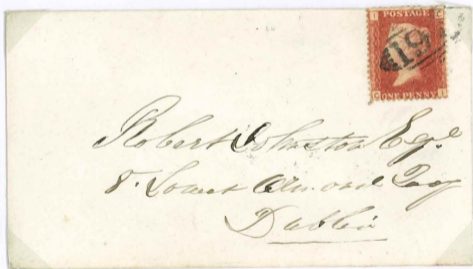 I POSTAGE C
C ONE PENNY I
Robert Johnston Esqr.
8. Lower Ormond Quay
Dublin